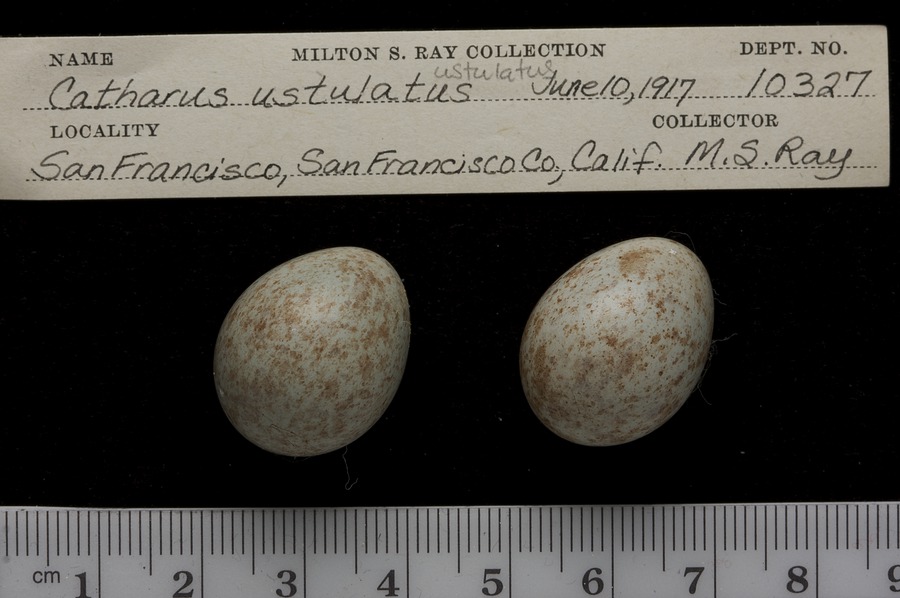 NAME MILTON S. RAY COLLECTION DEPT. NO.
ustulatus
Catharus ustulatus June 10, 1917 10327
LOCALITY COLLECTOR
San Francisco, San Francisco Co, Calif. M. S. Ray
cm 1 2 3 4 5 6 7 8 9